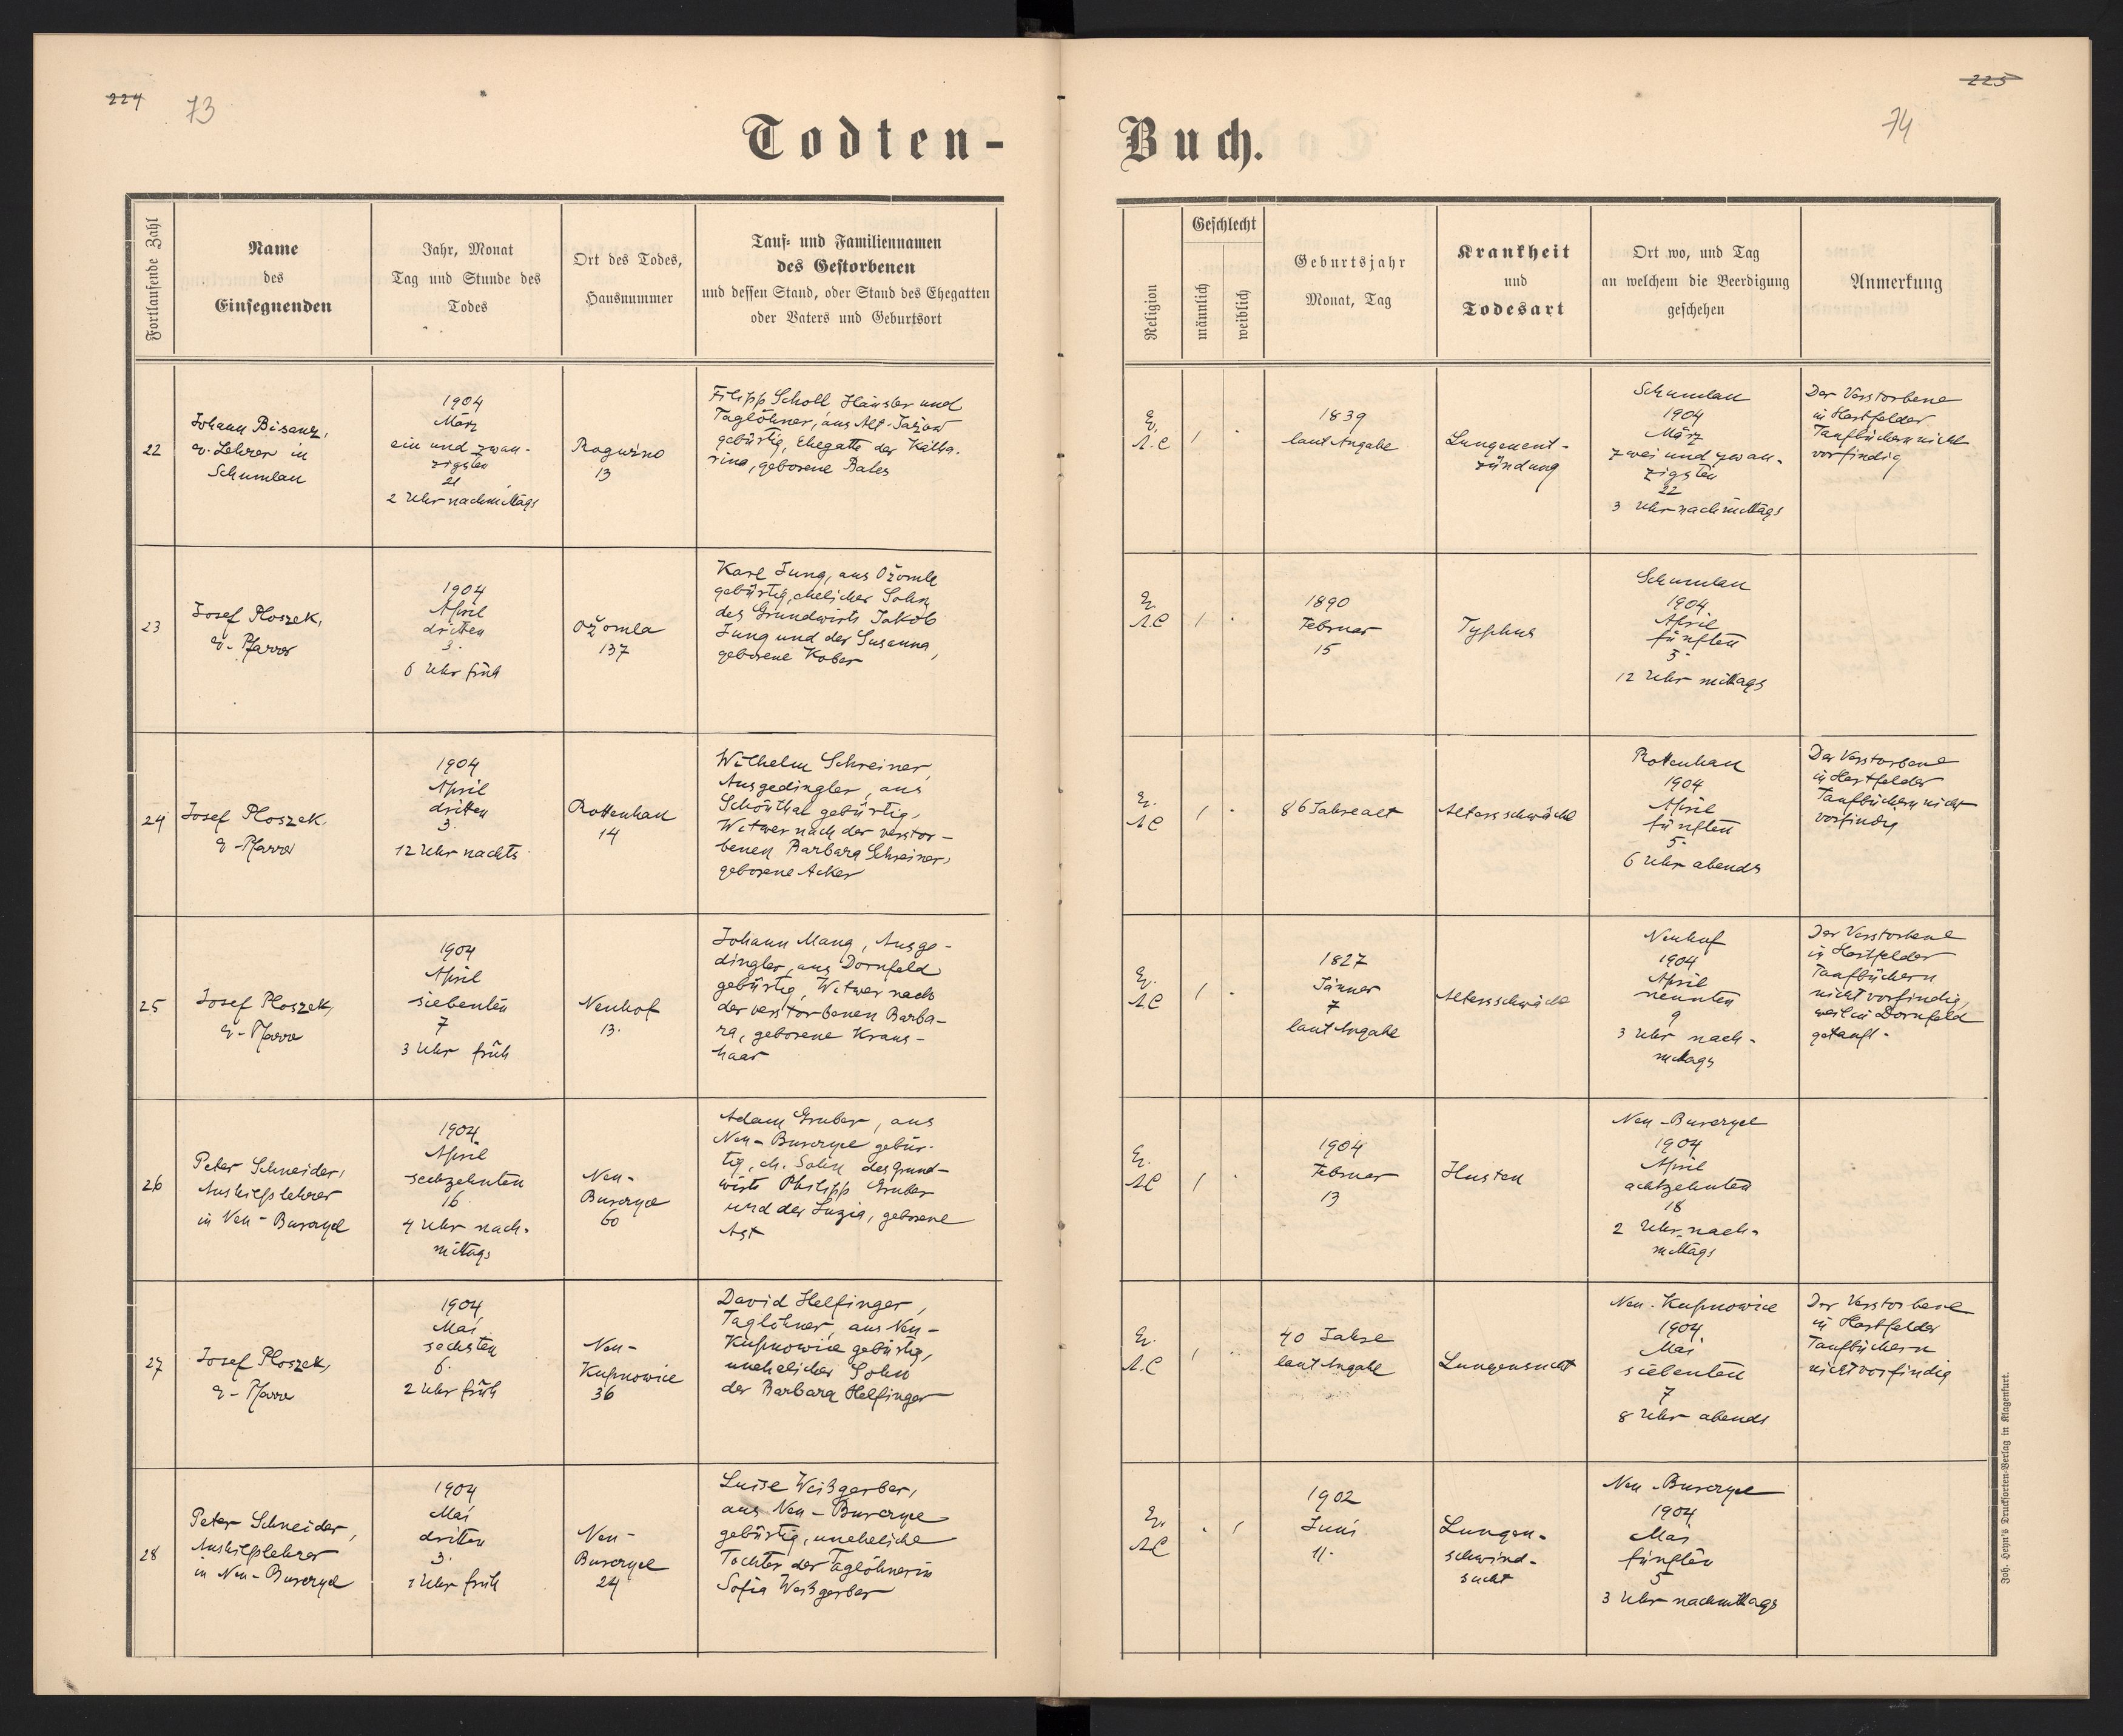 224
73
Todten-
Fortlaufende Zahl
Name
des
Einsegnenden
Jahr, Monat
Tag und Stunde des
Todes
Ort des Todes,
Hausnummer
Tauf- und Familiennamen
des Gestorbenen
und dessen Stand, oder Stand des Ehegatten
oder Vaters und Geburtsort
22
Johann Bisanz,
ev. Lehrer in
Schumlau
1904
März
ein und zwan-
zigsten
21
2 Uhr nachmittags
Roguźno
13
Filipp Scholl, Häusler und
Taglöhner, aus Alt-Jażow
gebürtig, Ehegatte der Katha-
rina, geborene Bales
23
Josef Ploszek,
ev. Pfarrer
1904
April
dritten
3.
6 Uhr früh
Ożomla
137
Karl Jung, aus Ożomla
gebürtig, ehelicher Sohn
des Grundwirts Jakob
Jung und der Susanna,
geborene Kober
24
Josef Ploszek,
ev. Pfarrer
1904
April
dritten
3.
12 Uhr nachts
Rottenhan
14
Wilhelm Schreiner,
Ausgedingler, aus
Schönthal gebürtig,
Witwer nach der verstor-
benen Barbara Schreiner,
geborene Acker
25
Josef Ploszek,
ev. Pfarrer
1904
April
siebenten
7
3 Uhr früh
Neuhof
13.
Johann Mang, Ausge-
dingler, aus Dornfeld
gebürtig, Witwer nach
der verstorbenen Barba-
ra, geborene Kraus-
haar
26
Peter Schneider,
Aushilfslehrer
in Neu-Bunczyce
1904
April
sechzehnten
16
4 Uhr nach-
mittags
Neu-
60
Adam Gruber, aus
gebür-
tig, eh. Sohn des Grund-
wirts Philipp Gruber
und der Luzia, geborene
Ast
27
Josef Ploszek,
ev. Pfarrer
1904
Mai
sechsten
6.
2 Uhr früh
Neu-
Kupnowice
36
David Helfinger,
Taglöhner, aus Neu-
Kupnowice gebürtig,
unehelicher Sohn
der Barbara Helfinger
28
Peter Schneider,
Aushilfslehrer
1904
Mai
dritten
3.
1 Uhr früh
Neu-
24
Luise Weißgerber,
gebürtig, uneheliche
Tochter der Taglöhnerin
Sofia Weißgerber
225
74
Buch.
Religion
Geschlecht
männlich
weiblich
Geburtsjahr
Monat, Tag
Krankheit
und
Todesart
Ort wo, und Tag
an welchem die Beerdigung
geschehen
Anmerkung
Ev.
A.C
1839
laut Angabe
Lungenent-
zündung
Schumlau
1904
März
zwei und zwan-
zigsten
22
3 Uhr nachmittags
Der Verstorbene
in Hartfelder
Taufbüchern nicht
vorfindig
Ev.
A.C
1890
Februar
15
Typhus
Schumlau
1904
April
fünften
5.
12 Uhr mittags
Ev.
A.C
86 Jahre alt
Altersschwäche
Rottenhan
1904
April
fünften
5.
6 Uhr abends
Der Verstorbene
in Hartfelder
Taufbüchern nicht
vorfindig
Ev.
A.C
1827
Jänner
7
laut Angabe
Altersschwäche
Neuhof
1904
April
neunten
9
3 Uhr nach-
mittags
Der Verstorbene
in Hartfelder
Taufbüchern
nicht vorfindig,
weil in Dornfeld
getauft.
Ev.
A.C
1904
Februar
13
Husten
1904
April
achtzehnten
18
2 Uhr nach-
mittags
Ev.
A.C
40 Jahre
laut Angabe
Lungensucht
Neu-Kupnowice
1904
Mai
siebenten
7
8 Uhr abends
Der Verstorbene
in Hartfelder
Taufbüchern
nicht vorfindig
Ev.
A.C
1902
Juni
11.
Lungen-
schwind-
sucht
1904
Mai
fünften
5
3 Uhr nachmittags
Joh. Heyn's Drucksorten-Verlag in Klagenfurt.